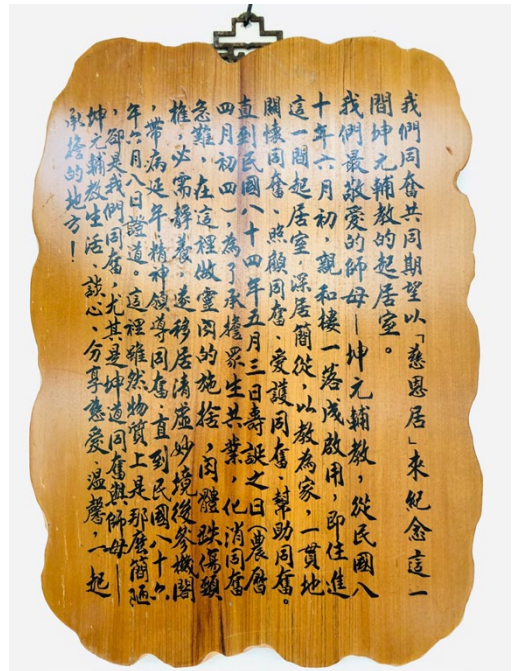 我們同奮共同期望以「慈恩居」來紀念這一
間坤元輔教的起居室。
我們最敬愛的師母—坤元輔教，從民國八
十年六月初，親和樓一落成啟用，即住進
這一間起居室，深居簡從，以教為家，一貫地
關懷同奮、照顧同奮、愛護同奮、幫助同奮。
直到民國八十四年五月三日壽誕之日(農曆
四月初四)，為了承擔眾生共業，化消同奮
急難，在這裡做靈肉的施捨，肉體跌傷頸
椎，必需靜養，遂移居清虛妙境後參機閣
，帶病延年，精神領導同奮，直到民國八十六
年六月八日證道。這裡雖然物質上是那麼簡陋
，卻是我們同奮，尤其是坤道同奮與師母—
坤元輔教生活、談心、分享慈愛、溫馨，一起
承擔的地方！